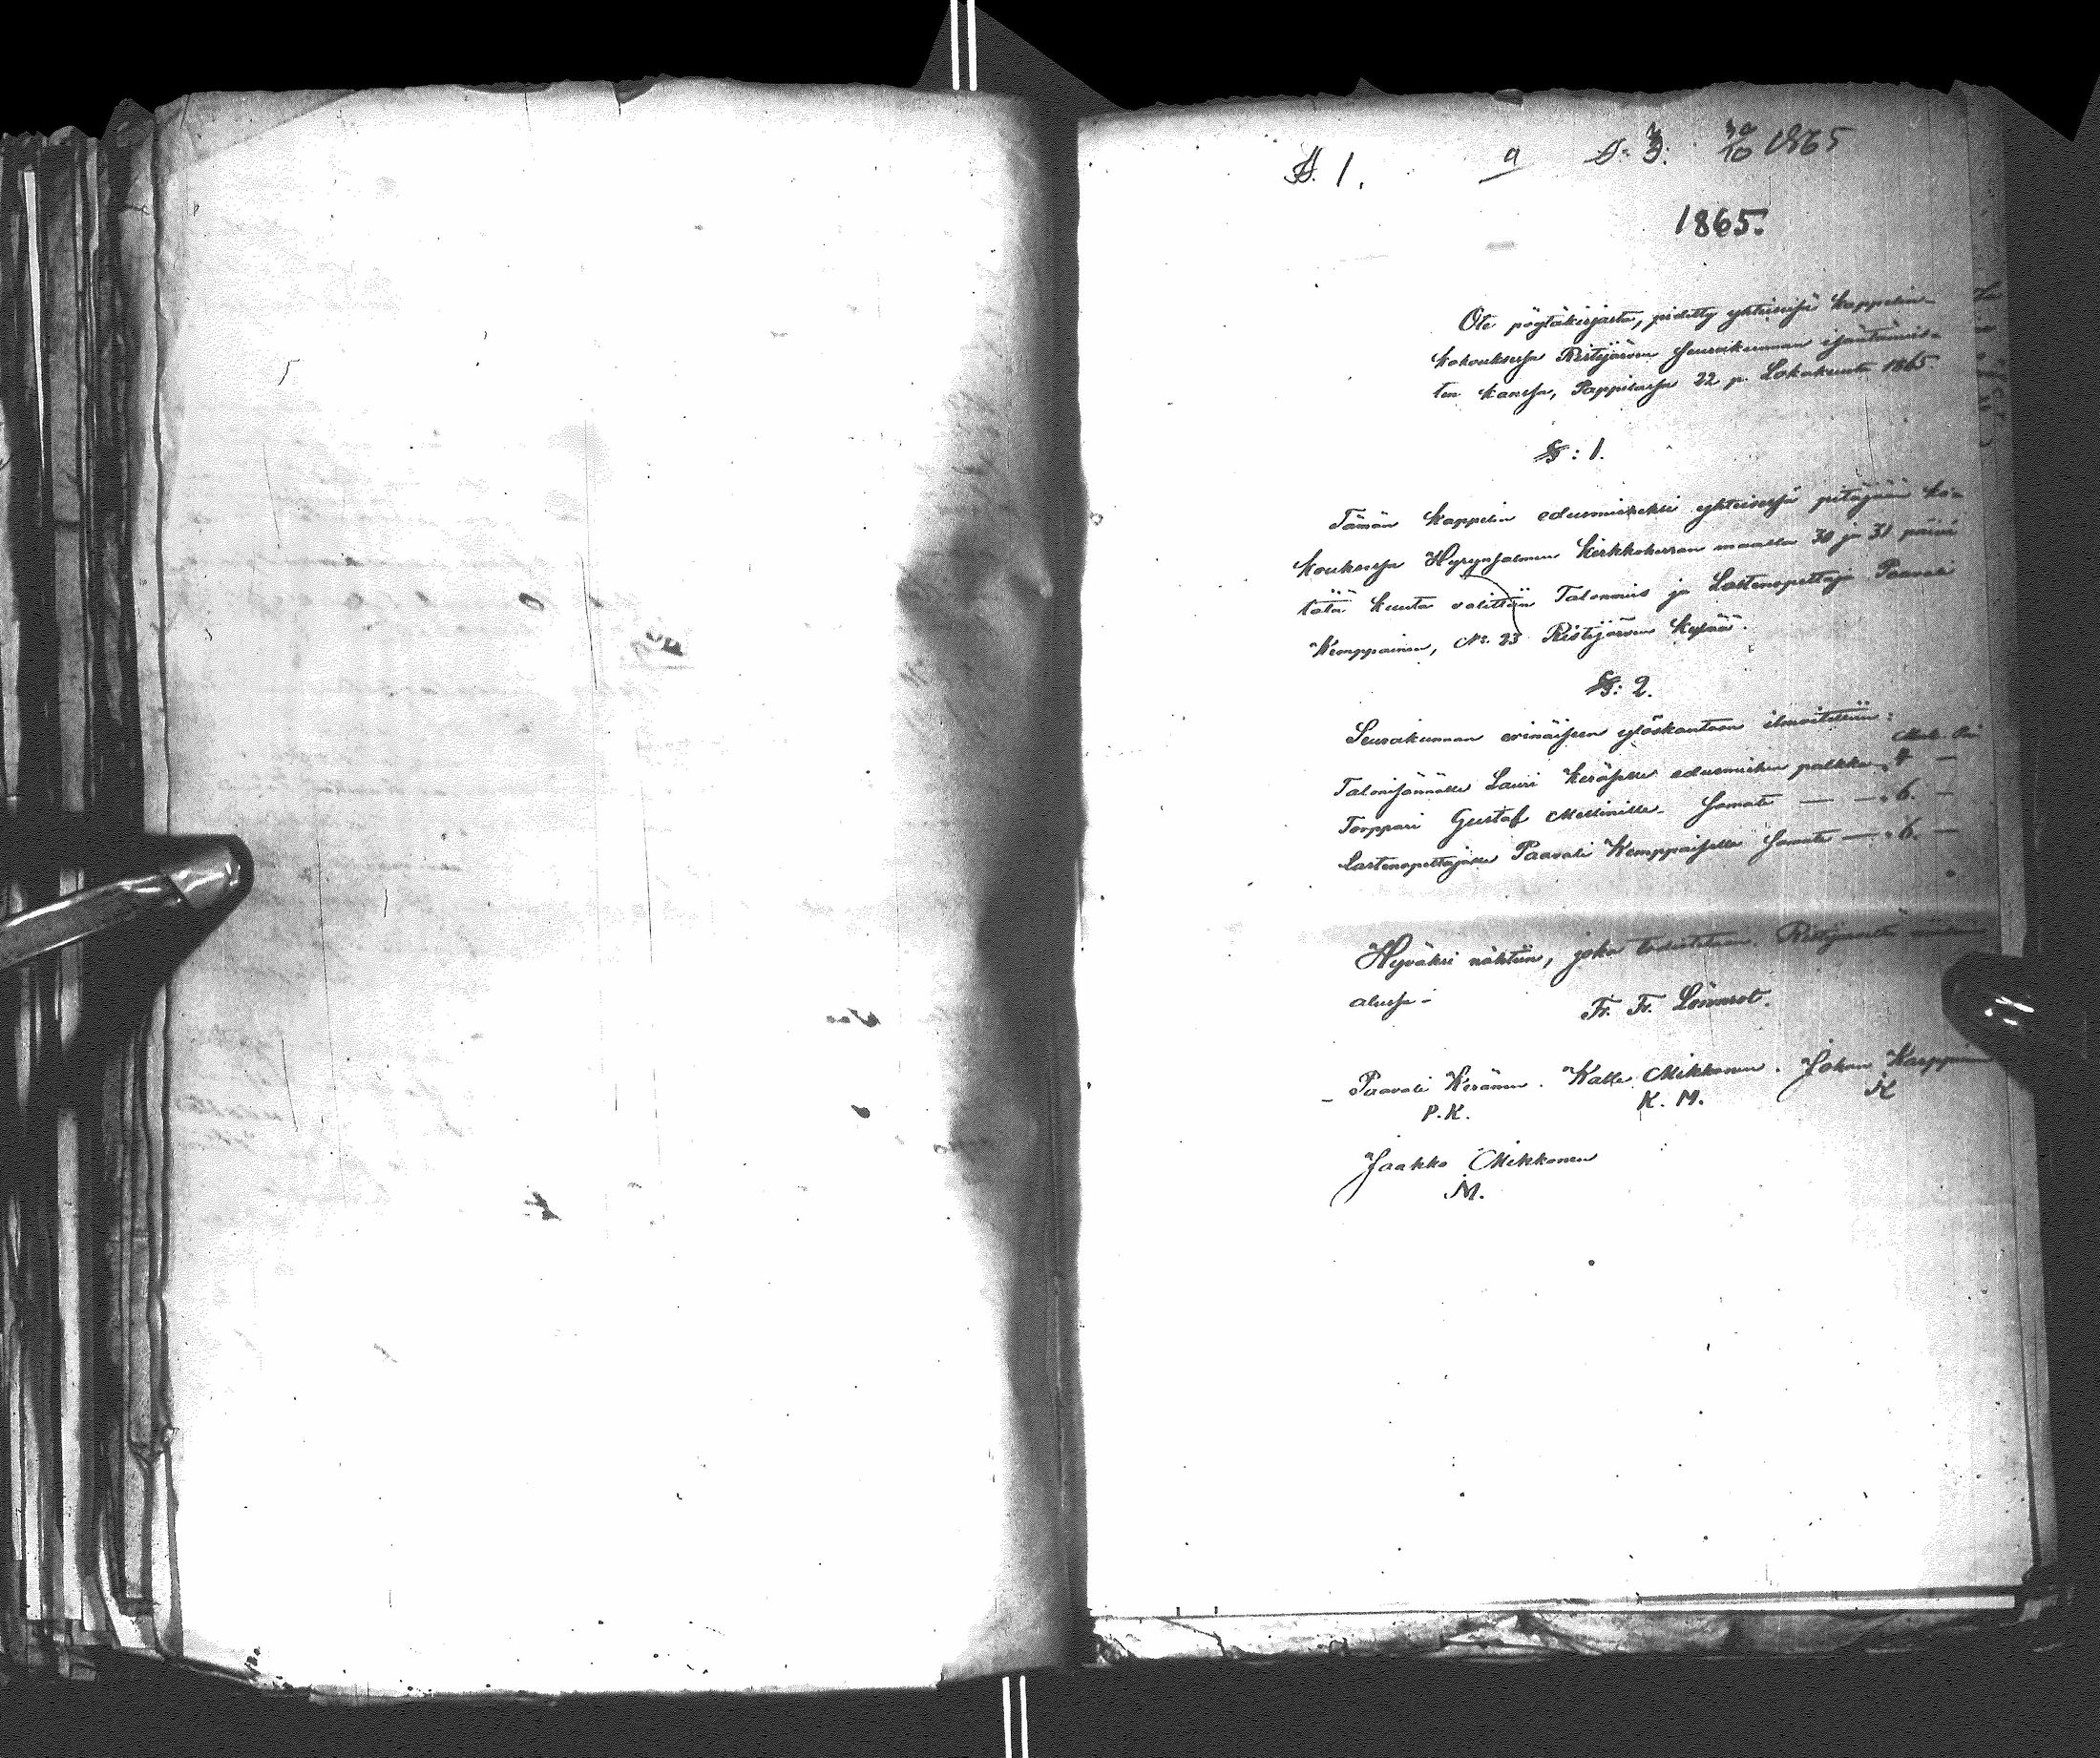 §. 1. a §: 3. 30/10 1865
1865.
Ote pöytäkirjasta, pidetty yhteisesä kappelin-
kokouksesa Ristijärven Seurakunnan isäntämies-
ten kansa, Pappilasa 22 p. Lokakuuta 1865.
§: 1.
Tämän kappelin edusmieheksi yhteisesä pitäjään ko-
kouksesa Hyrynsalmen Kirkkoherran maalla 30 ja 31 päivä
tätä kuuta valittiin Talonmies ja Lastenopettaja Paavali
Kemppainen, No. 23 Ristijärven kylää.
§: 2.
Seurakunnan erinäiseen ylöskantoon ilmoitettiin:
Mark. Pi
Talonisännälle Lauri Keräselle edusmiehen palkka „ 4 —
Torppari Gustaf Mellinille Samate — — „ 6. —
Lastenopettajalle Paavali Kemppaiselle Samate — „ 6. —
Hyväksi nähtiin, joka todistetaan. Ristijärvellä
alusa -
Fr. Fr. Lönnrot.
Paavali Keränen. Kalle Mikkonen. Johan Karppinen
P. K. K. M. K
Jaakko Mikkonen
M.